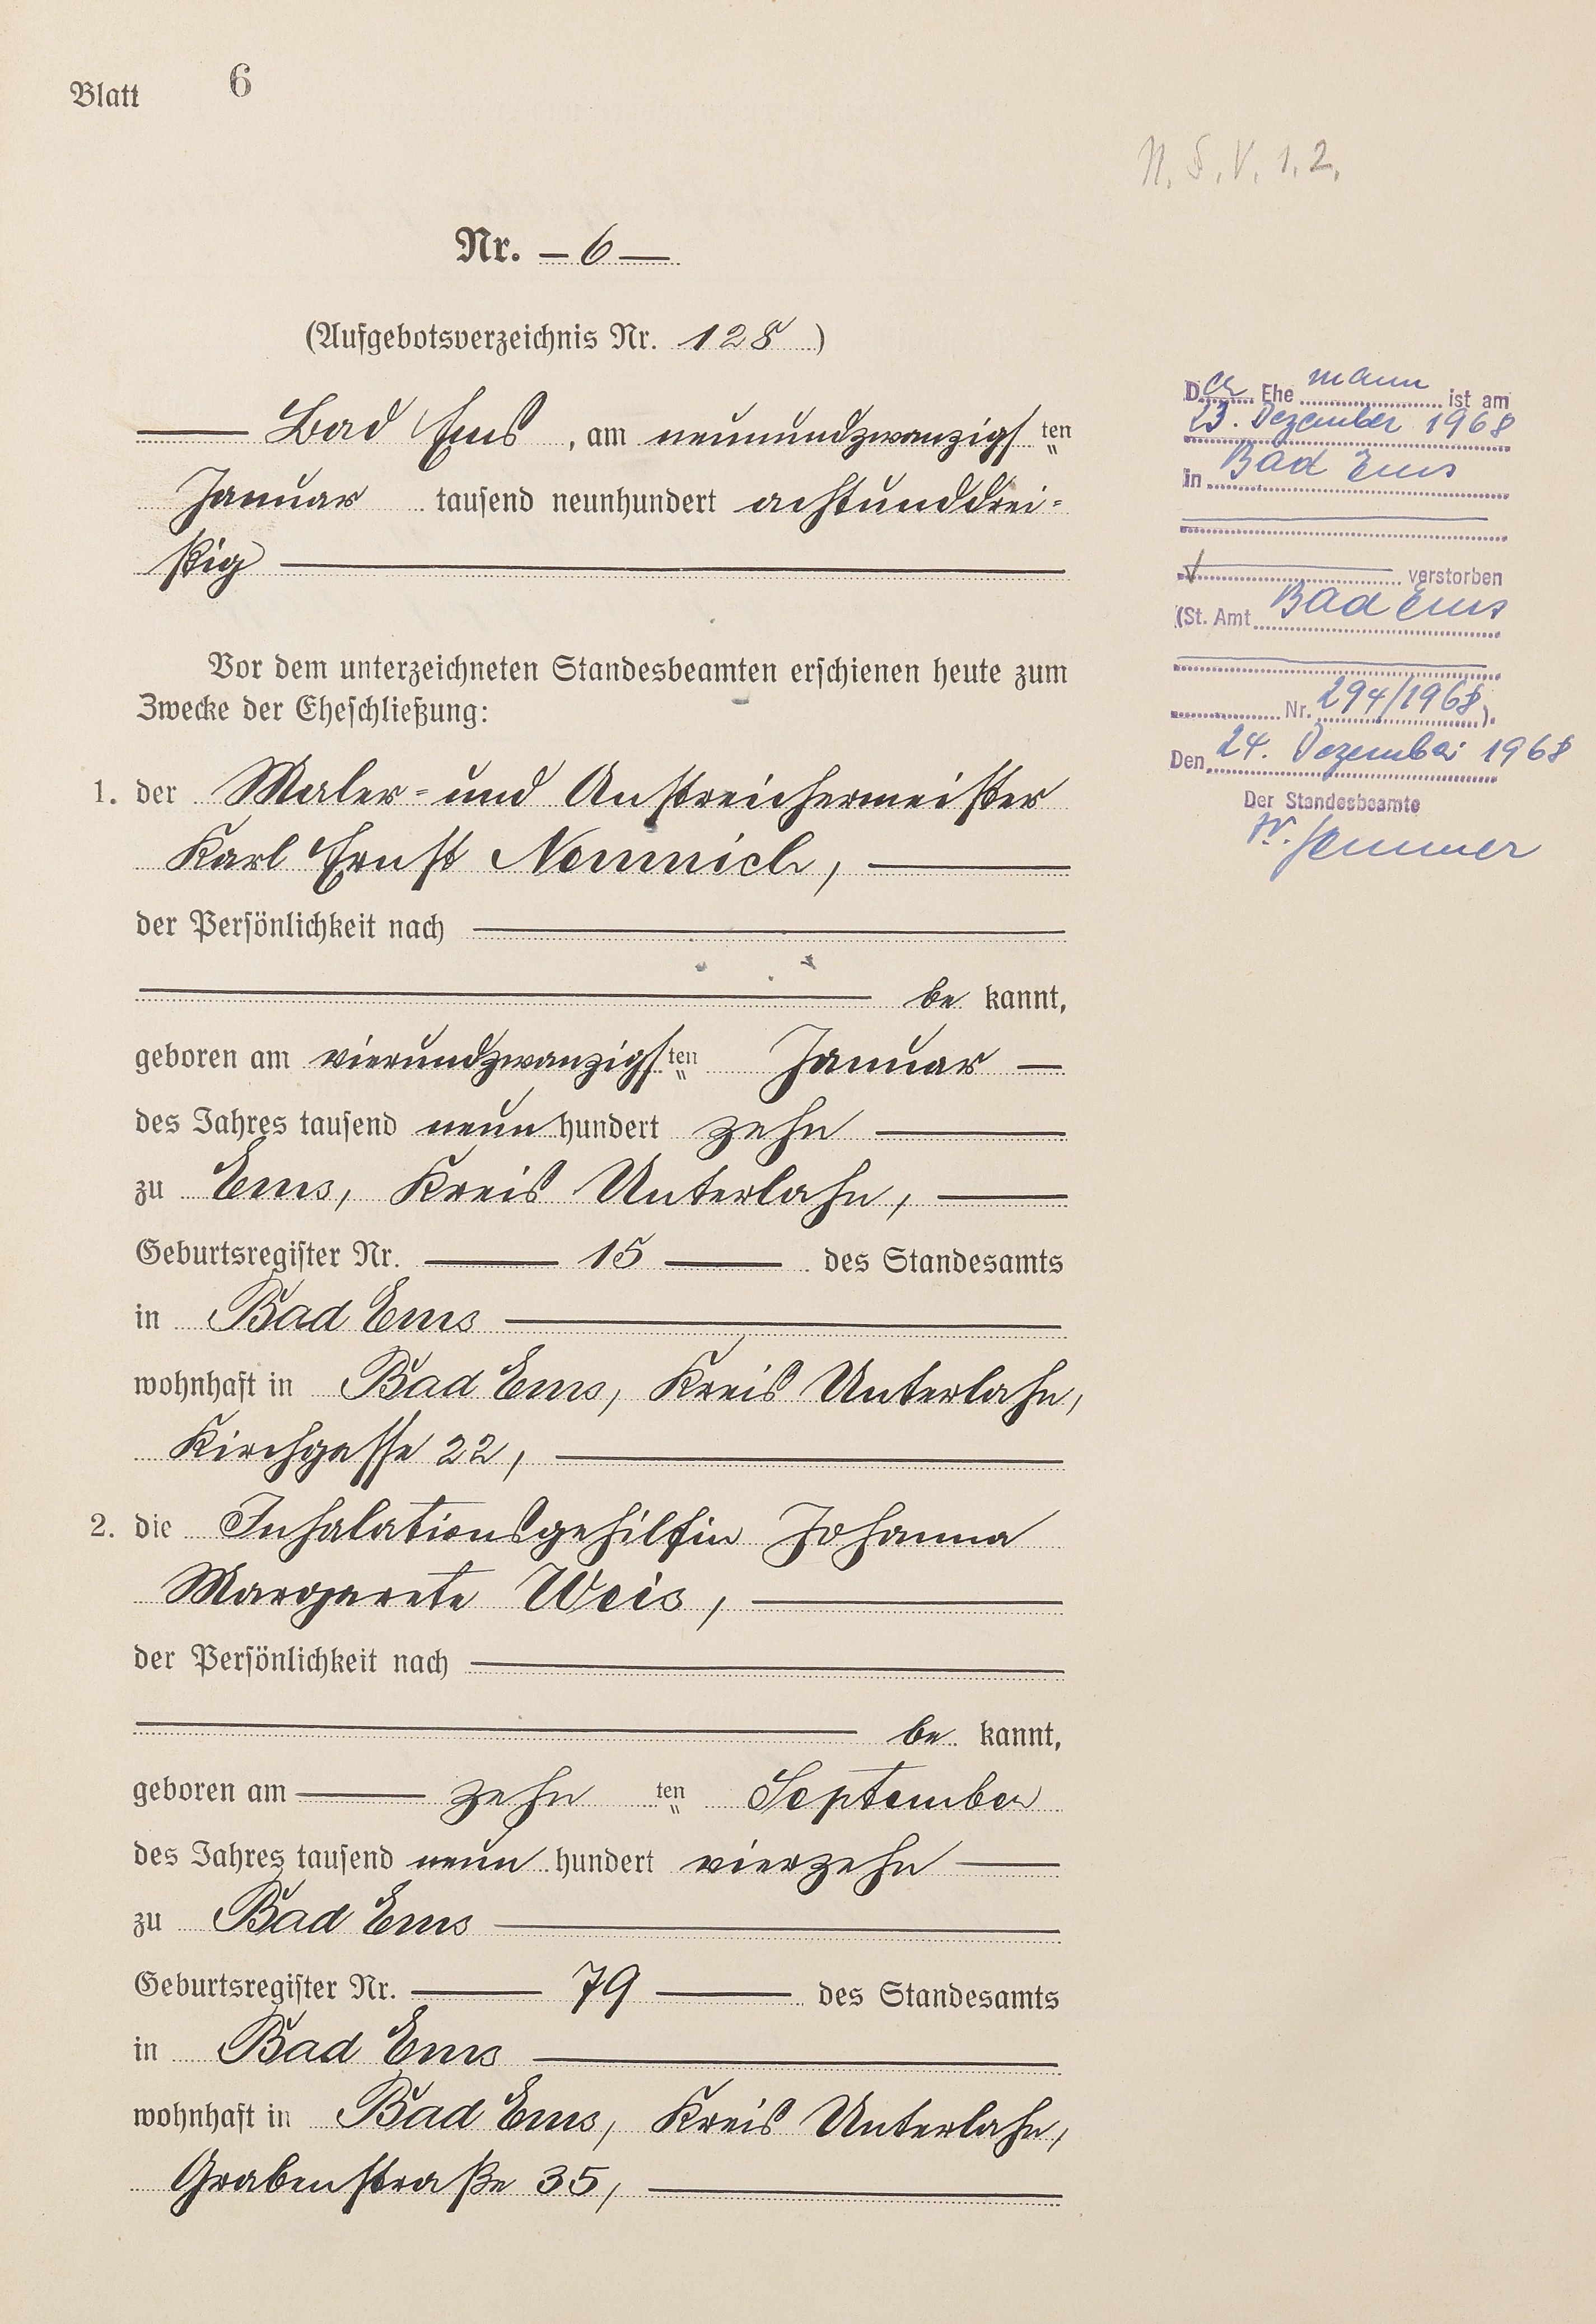 Blatt 6
N. S. V. 1. 2.
Nr. — 6 —
(Aufgebotsverzeichnis Nr. 128)
Bad Ems, am neunundzwanzigsten
Januar tausend neunhundert achtunddrei-
ßig
Vor dem unterzeichneten Standesbeamten erschienen heute zum
Zwecke der Eheschließung:
1. der Maler- und Anstreichermeister
Karl Ernst Nemnich,
der Persönlichkeit nach
be kannt,
geboren am vierundzwanzigsten Januar
des Jahres tausend neun hundert zehn
zu Ems, Kreis Unterlahn,
Geburtsregister Nr. 15 des Standesamts
in Bad Ems
wohnhaft in Bad Ems, Kreis Unterlahn,
Kirchgasse 22,
2. die Inhalationsgehilfin Johanna
Margarete Weis,
der Persönlichkeit nach
be kannt,
geboren am zehnten September
des Jahres tausend neun hundert vierzehn
zu Bad Ems
Geburtsregister Nr. 79 des Standesamts
in Bad Ems
wohnhaft in Bad Ems, Kreis Unterlahn,
Grabenstraße 35,
Der Ehemann ist am
23. Dezember 1968
in Bad Ems
verstorben
(St. Amt Bad Ems
Nr. 294/1968).
Den 24. Dezember 1968
Der Standesbeamte